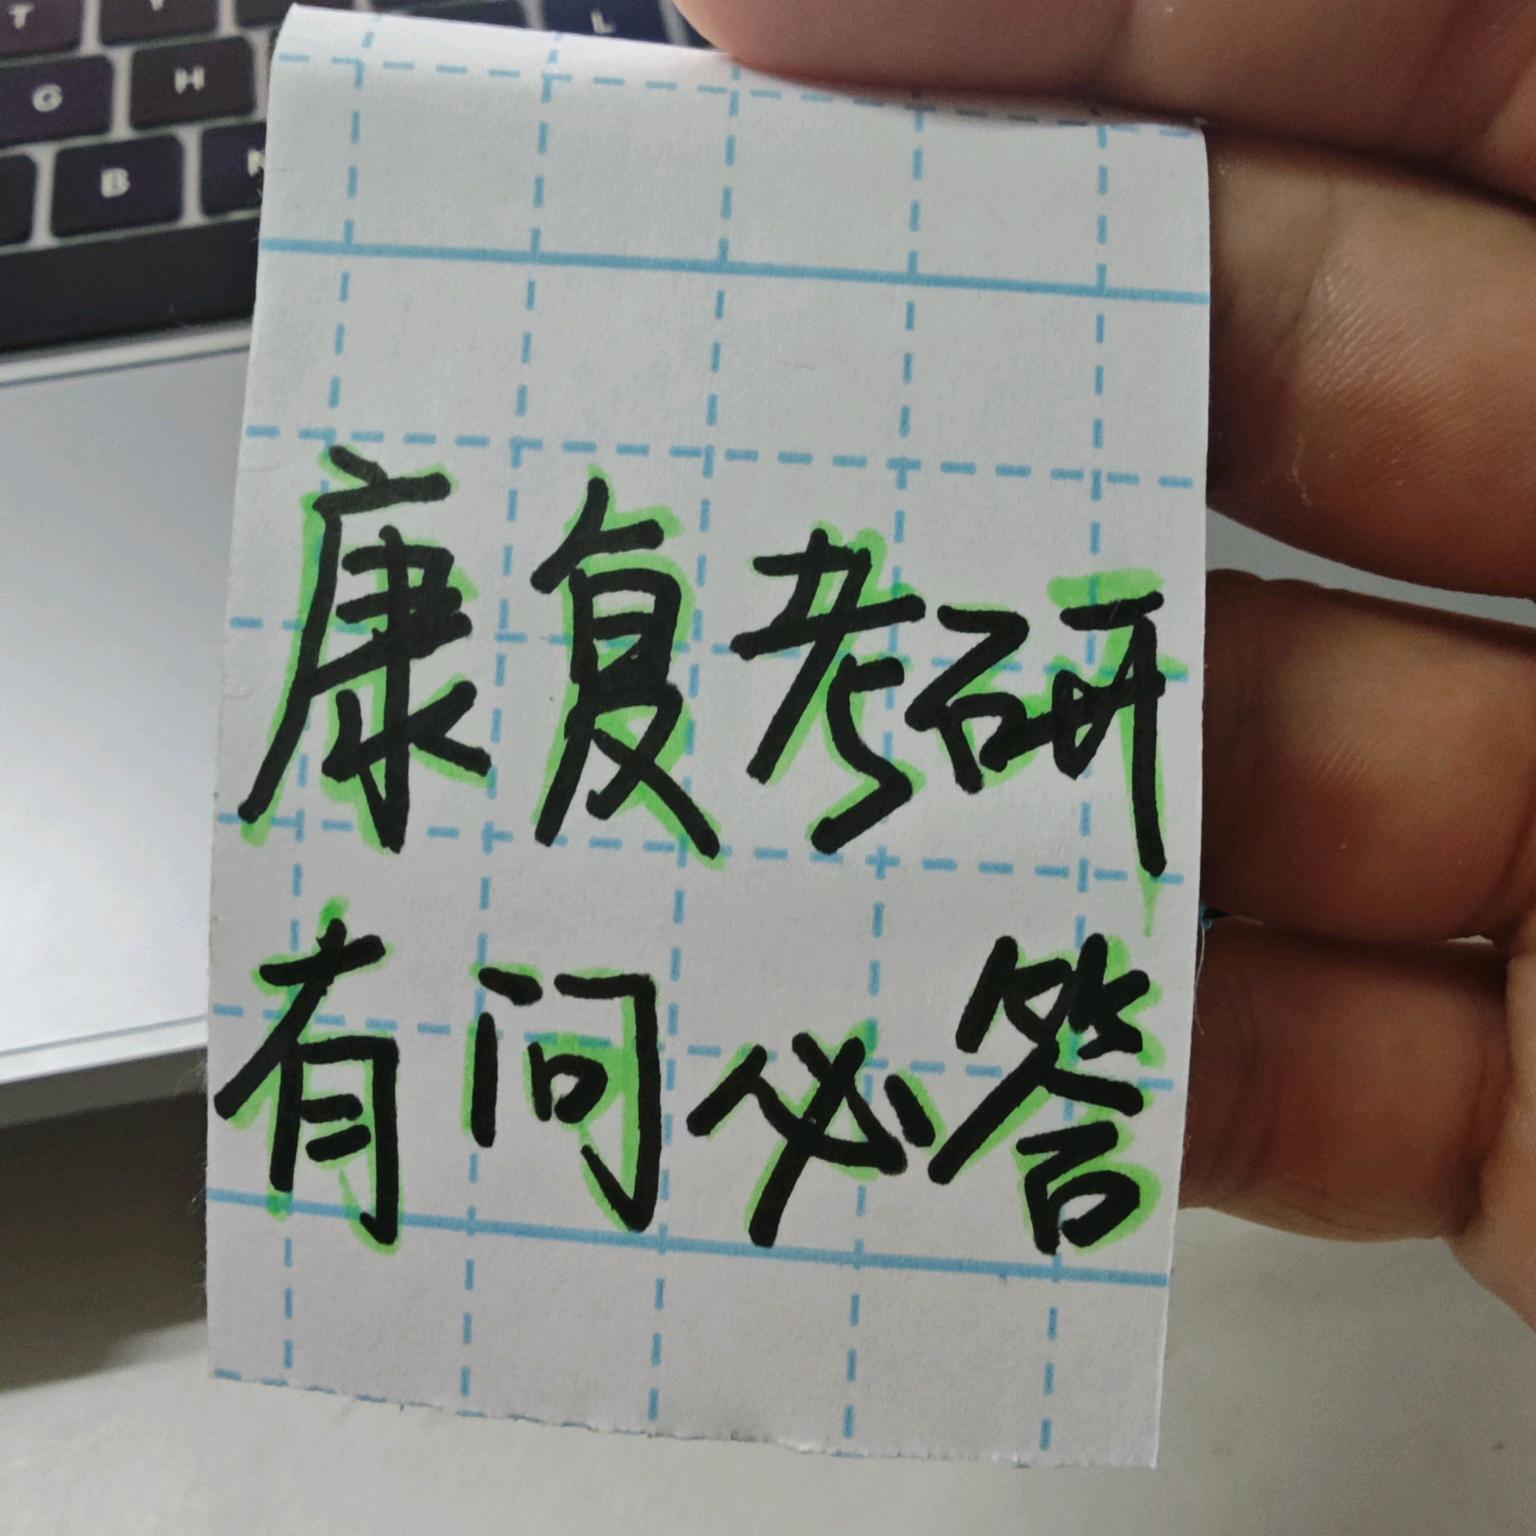 T Y L
G H
B N
康复考研
有问必答